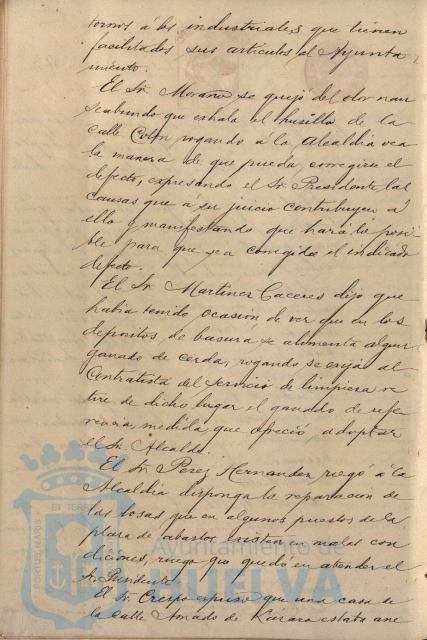 tornos á los industriales que tienen
facilitados sus artículos al Ayunta
miento.
El Sr. Morano se quejó del olor nau
seabundo que exhala el husillo de la
calle Colón rogando á la Alcaldía vea
la manera de que pueda corregirse el
defecto, expresando el Sr. Presidente las
causas que a su juicio contribuyen á
ello y manifestando que hará lo posi
ble para que sea corregido el indicado
defecto.
El Sr. Martinez Caceres dijo que
había tenido ocasión de ver que en los
depositos de basura se alimenta algun
ganado de cerda, rogando se exija al
Contratista del servicio de limpieza re
tire de dicho lugar el ganado de refe
rencia, medida que ofreció adoptar
el Sr. Alcalde.
El Sr. Perez Hernandez rogó á la
Alcaldía disponga la reparación de
las losas que en algunos puestos de la
plaza de abastos existen en malas con
diciones, ruego que quedó en atender el
Sr. Presidente.
El Sr. Crespo expuso que una casa de
la calle Amado de Lázara estaba ane
Ayuntamiento de
HUELVA
PORTUS MARIS
ET TERR